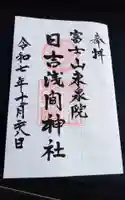 奉拝
富士山東泉院
日吉浅間神社
令和七年十一月二日